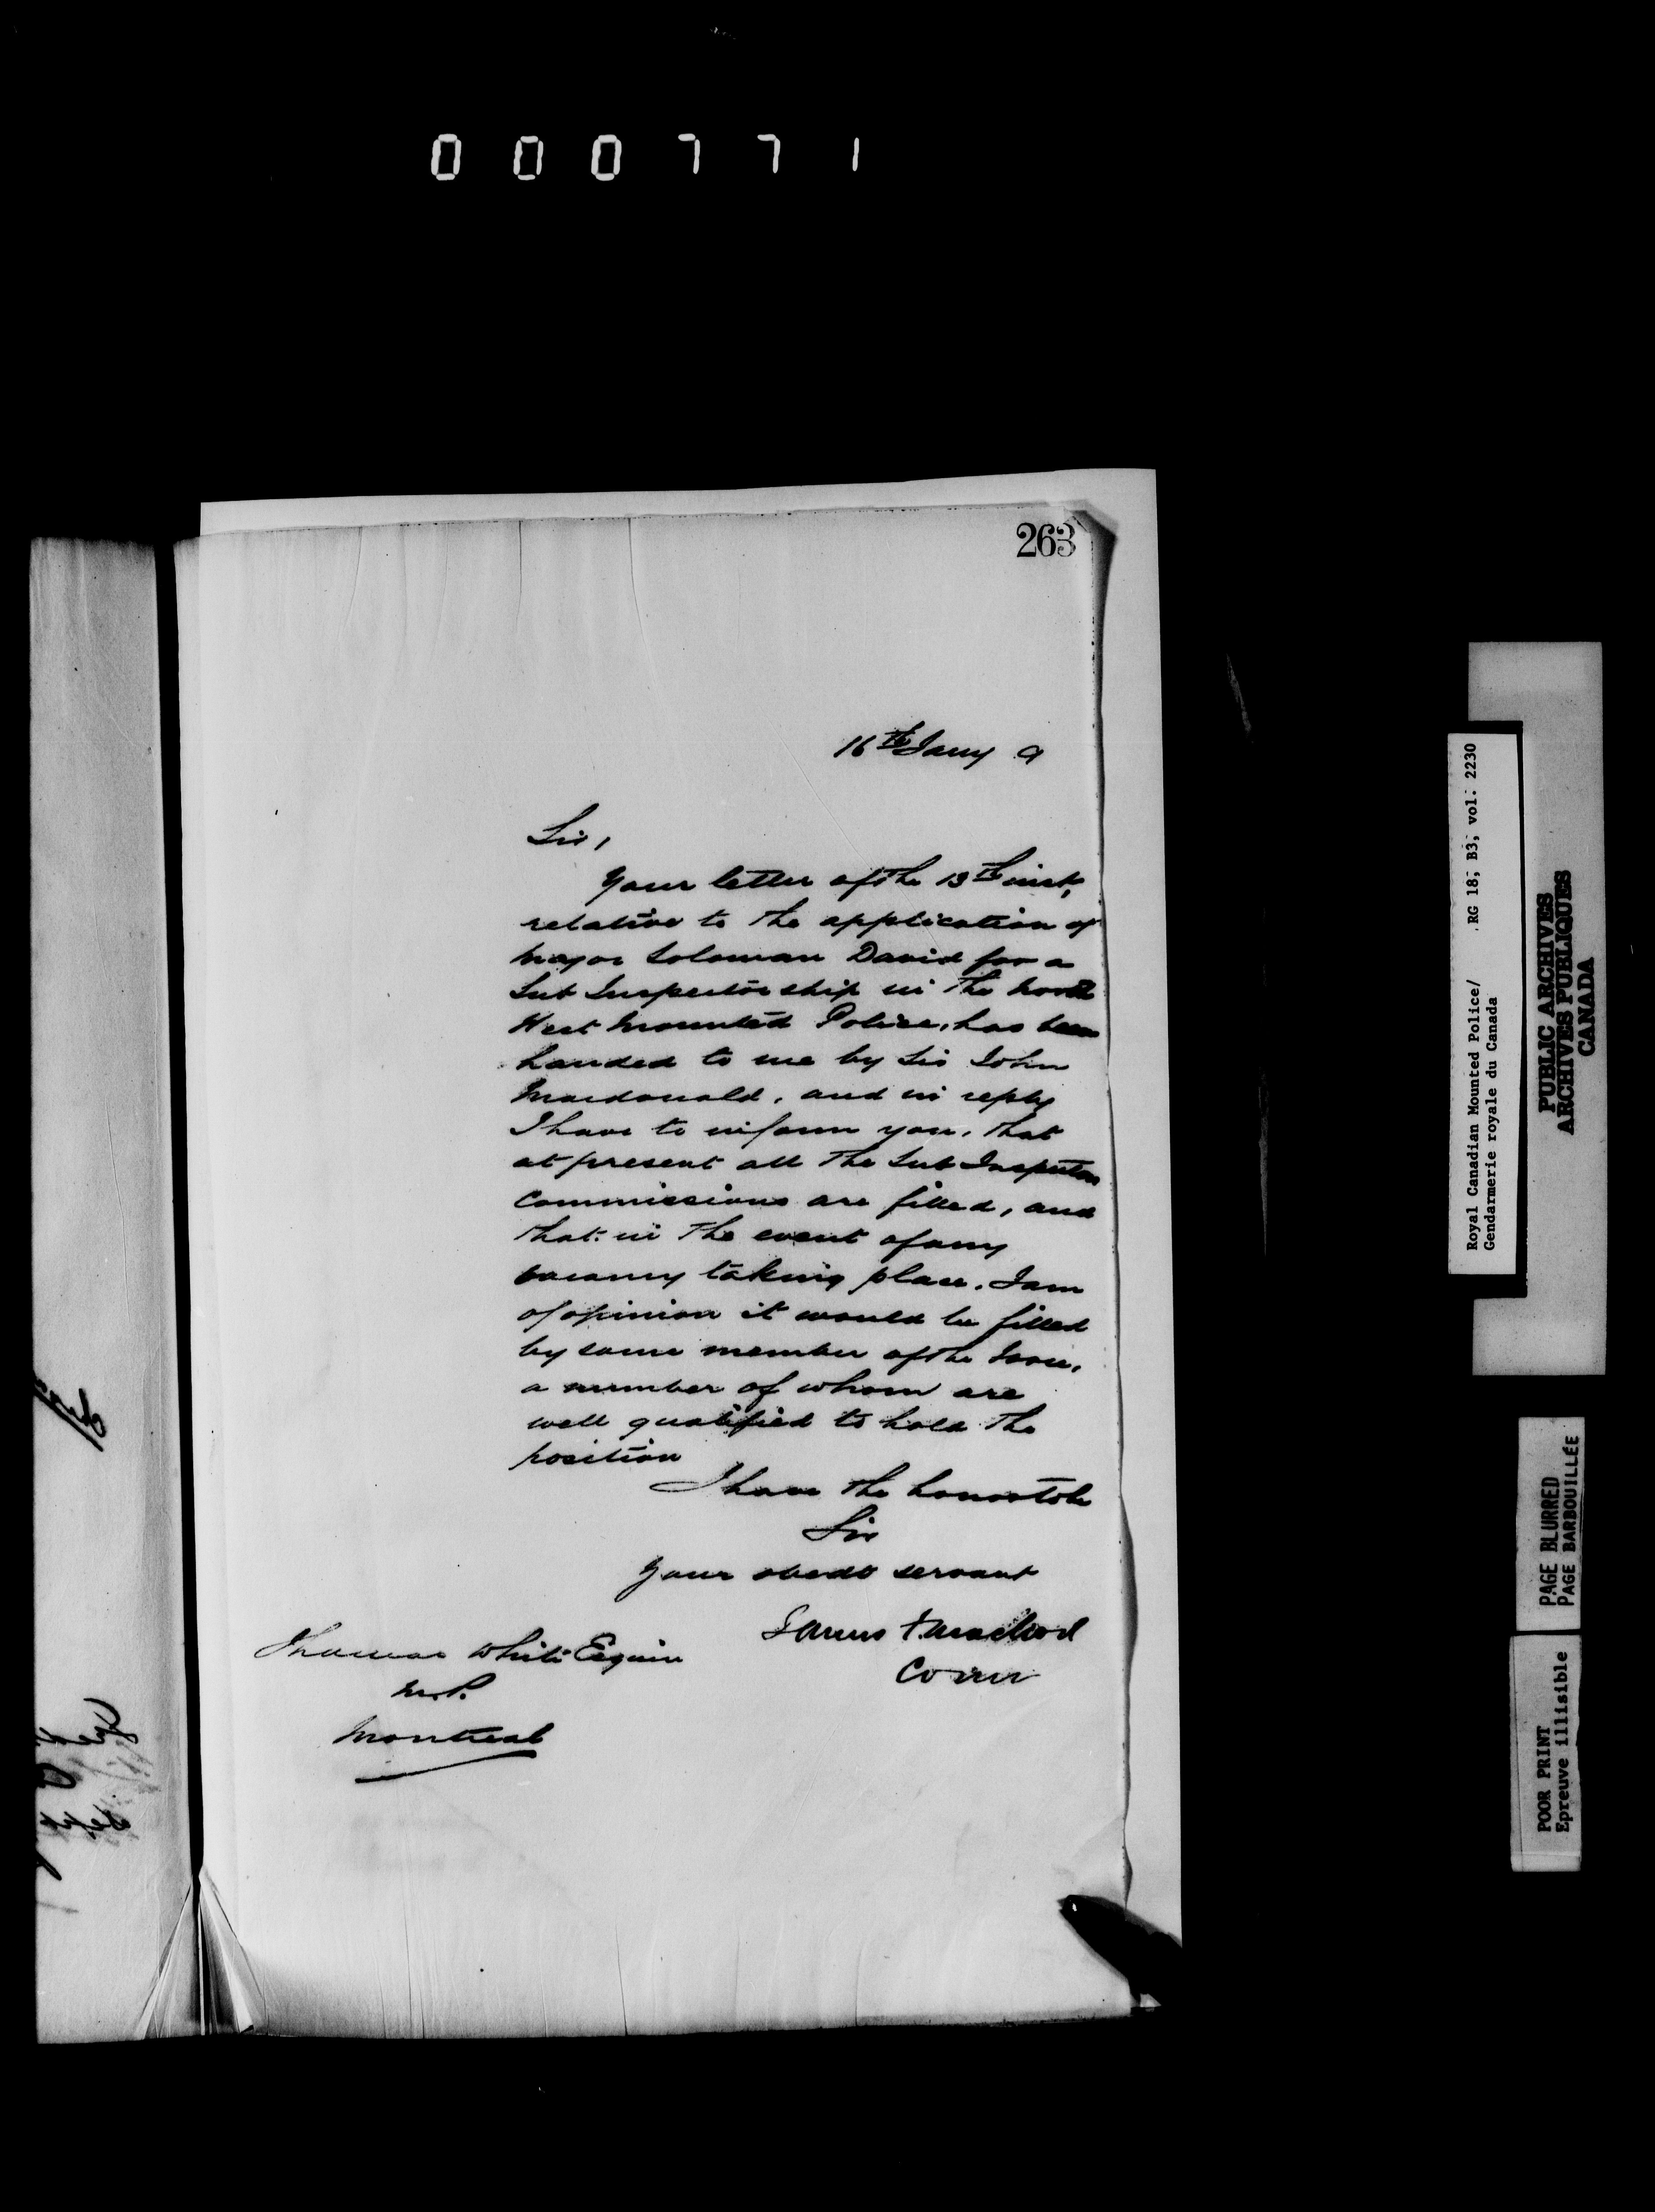 000771
263
16th Jany 9
Sir,
Your letter of the 13th inst,
relative to the application of
Major Soloman David for a
Sub Inspectorship in the North
West Mounted Police, has been
handed to me by Sir John
Macdonald, and in reply
I have to inform you, that
at present all the Sub Inspectors
Commissions are filled, and
that in the event of any
vacancy taking place, I am
of opinion it would be filled
by some member of the Force,
a number of whom are
well qualified to hold the
position
I have the honor to be
Sir
Your obedt servant
James F. Macleod
Comr
Thomas White Esquire
M.P.
Montreal
Royal Canadian Mounted Police/ RG 18, B3, vol: 2230
Gendarmerie royale du Canada
PUBLIC ARCHIVES
ARCHIVES PUBLIQUES
CANADA
PAGE BLURRED
PAGE BARBOUILLÉE
POOR PRINT
Epreuve illisible